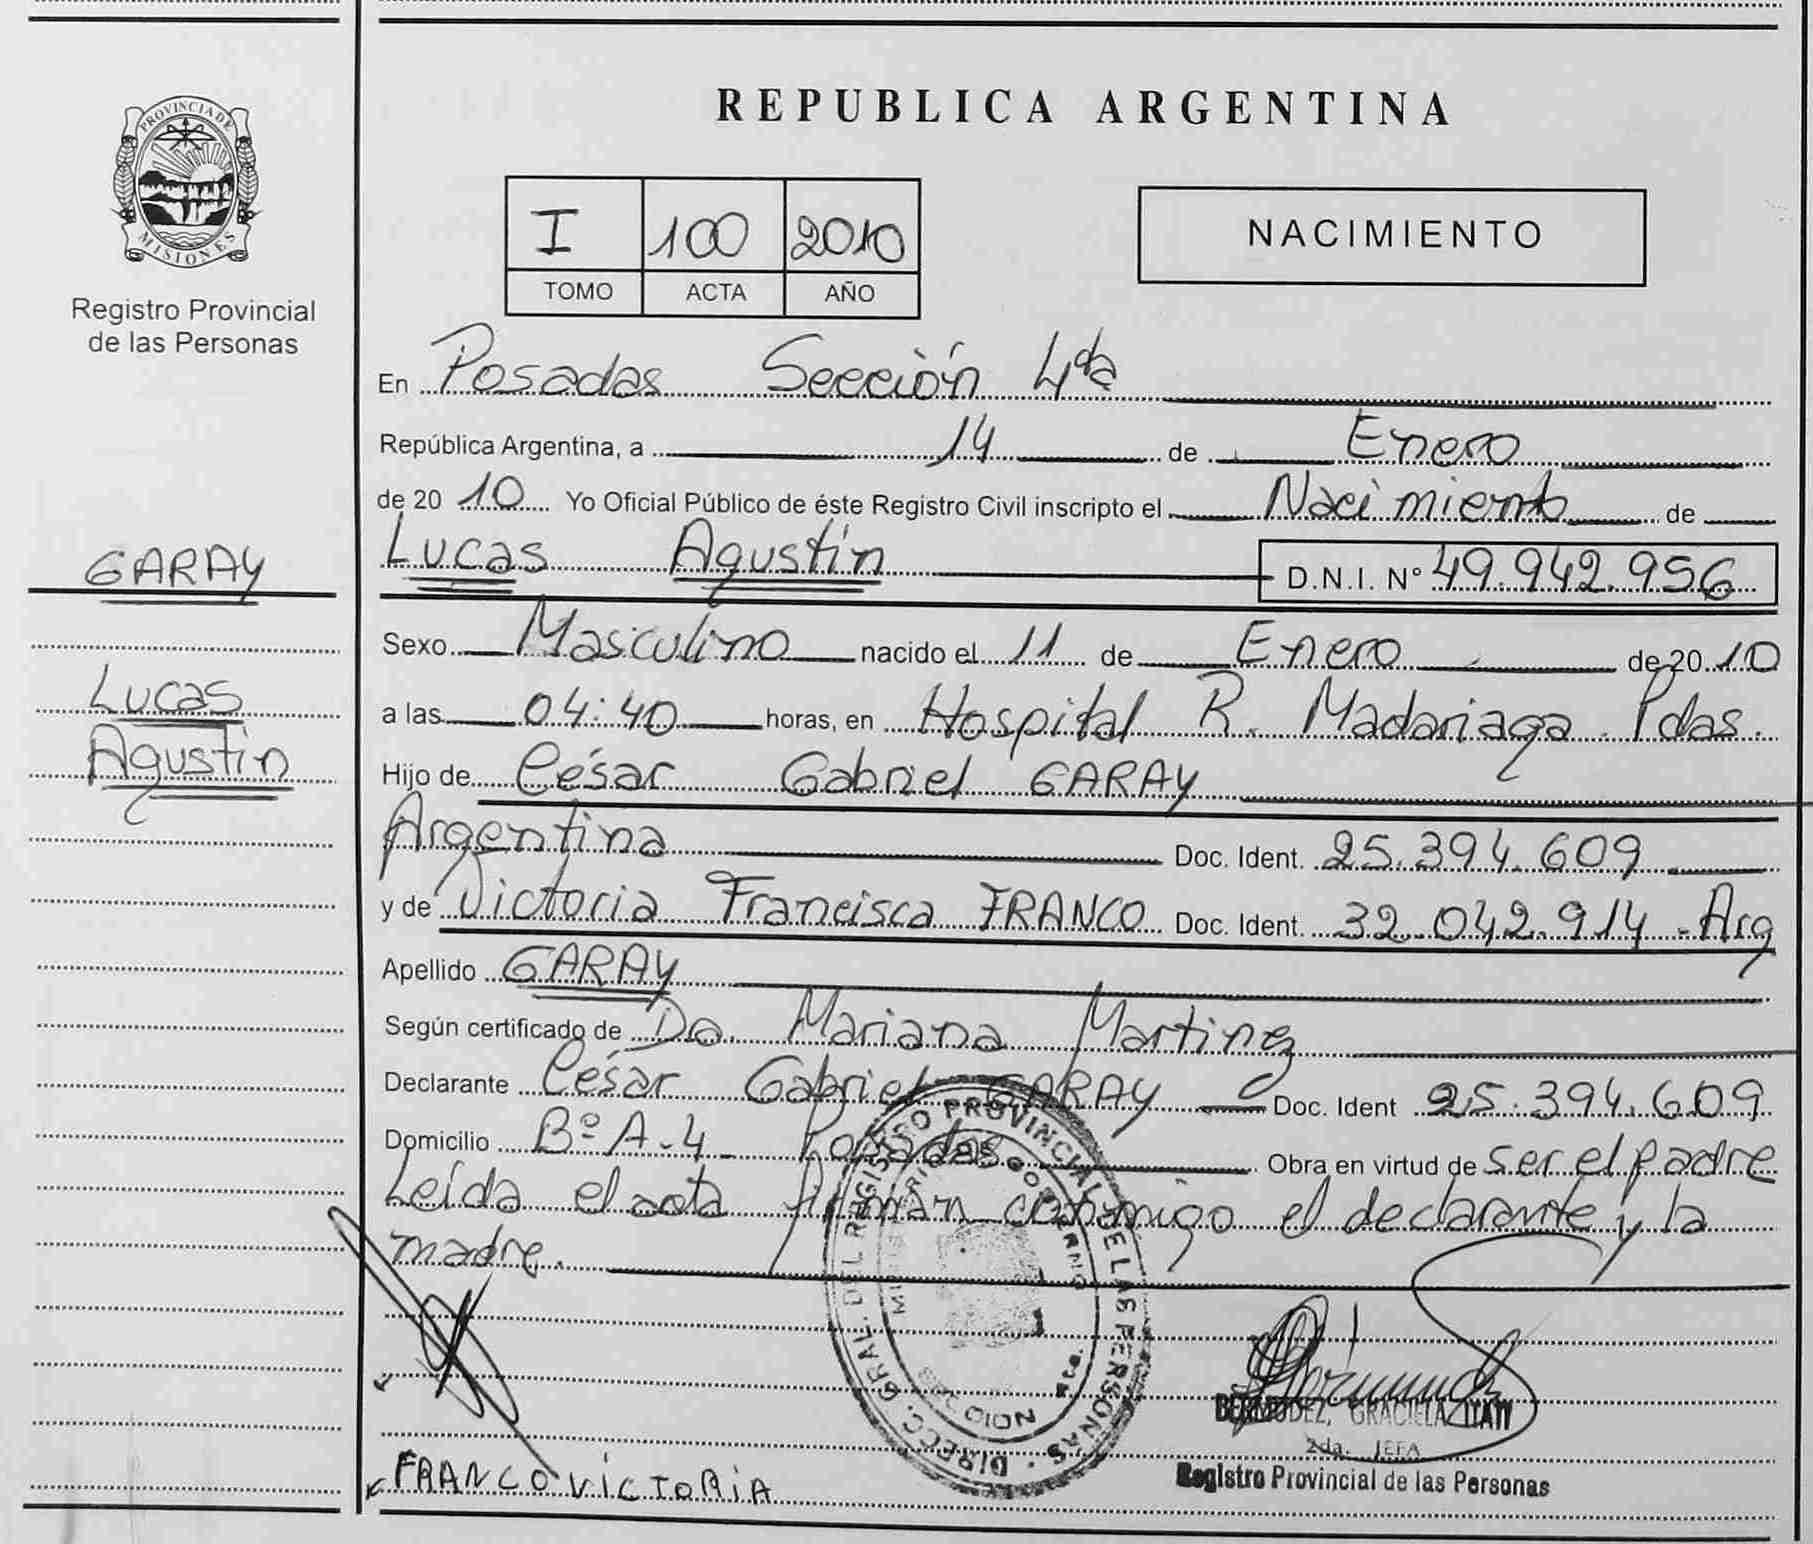 PROVINCIA DE
MISIONES
Registro Provincial
de las Personas
GARAY
Lucas
Agustín
REPUBLICA ARGENTINA
I 100 2010
TOMO ACTA AÑO
NACIMIENTO
En Posadas Sección 4da
República Argentina, a 14 de Enero
de 20 10 Yo Oficial Público de éste Registro Civil inscripto el Nacimiento de
Lucas Agustín D.N.I. Nº 49.942.956
Sexo Masculino nacido el 11 de Enero de 20 10
a las 04:40 horas, en Hospital R. Madariaga Pdas.
Hijo de César Gabriel GARAY
Argentina Doc. Ident. 25.394.609
y de Victoria Francisca FRANCO Doc. Ident. 32.042.914 - Arg
Apellido GARAY
Según certificado de Da. Mariana Martinez
Declarante César Gabriel GARAY Doc. Ident 25.394.609
Domicilio Bº A-4 Posadas Obra en virtud de ser el padre
Leída el acta firman conmigo el declarante y la
madre.
DIRECC. GRAL. DEL REGISTRO PROVINCIAL DE LAS PERSONAS
BERMUDEZ, GRACIELA
2da. JEFA
Registro Provincial de las Personas
FRANCO VICTORIA